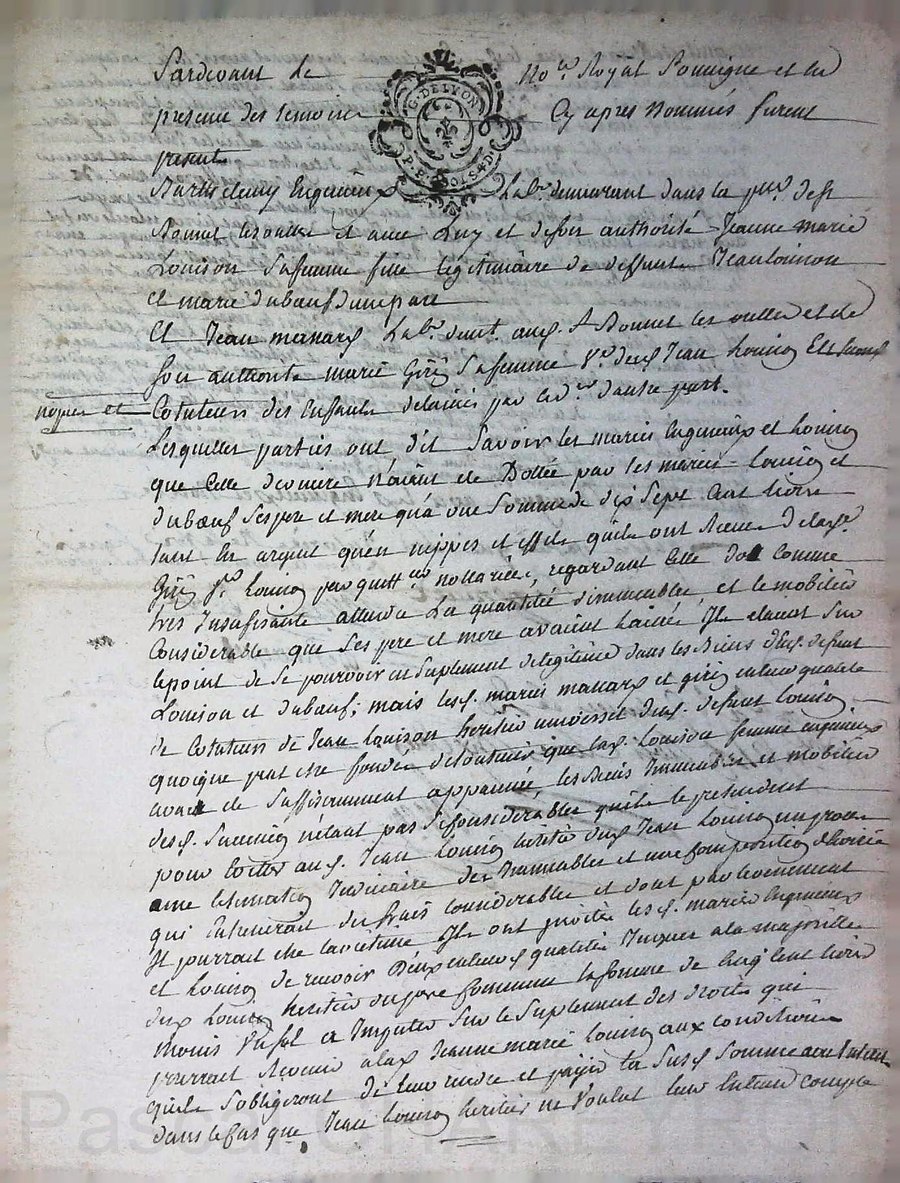 Pardevant le no.re Royal Soussigné et en
presence des temoins Cy apres Nommés furent
presents
G. DE LYON
P. P. 2 SOLS 4 D.
Barthelemy Enguineux Lab.r demeurant dans la par. de St
Bonnet les oulles et avec Luy et de son authorité Jeanne marie
Louison Sa femme fille legitimaire de deffunts Jean Louison
et marie dubœuf d'une part
Et Jean manarx Lab.r demt. aud. St Bonnet les oulles et de
son authorité marie Giry Sa femme V.e de Jean Louison
Cotuteurs des Enfants delaissés par led. d'autre part.
Lesquelles parties ont dit Savoir les mariés Enguineux et Louison
que Cette derniere n'aiant été Dottée par les mariés Louison et
dubœuf Ses pere et mere qu'a une Somme de dix Sept Cent livres
tant en argent qu'en nippes et effets qu'ils ont Receu de lad.e
Giry V.e Louison par quitt.ce nottariée, regardant Cette dot Comme
très Insufisante attendu La quantité d'immeubles, et le mobilier
Considerable que Ses pere et mere avaient Laissé, Ils etaient Sur
le point de Se pourvoir en Suplement de legitime dans les Biens desd. defunts
Louison et dubœuf; mais lesd. mariés manarx et giry en leur qualité
de Cotuteurs de Jean Louison heritier universel dud. defunt Louison
quoique peut etre fondés a Soutenir que lad. Louison femme enguineux
avait été Suffisamment appannée, les Biens Immeubles et mobiliers
desd. Succession n'étant pas Si Considerables qu'ils le pretendent
pour eviter aud. Jean Louison heritier dud. Jean Louison un procès
une Estimation Judiciaire des Immeubles et une Composition d'hoirie
qui Entrainerait des frais Considerables et dont par evenement
Il pourrait etre la victime Ils ont invités lesd. mariés Enguineux
et Louison de recevoir D'eux en leursd. qualités Jusques a la majorité
dud. Louison heritier du pere Commun la Somme de Cinq Cent livres
a Imputer Sur le Suplement des droits qui
pourrait Revenir a lad. Jeanne marie Louison aux Conditions
qu'ils S'obligeront de leur rendre et payer la Susd. Somme avec Interet
dans le Cas que Jean Louison heritier ne Voulut leur Entrer en Compte